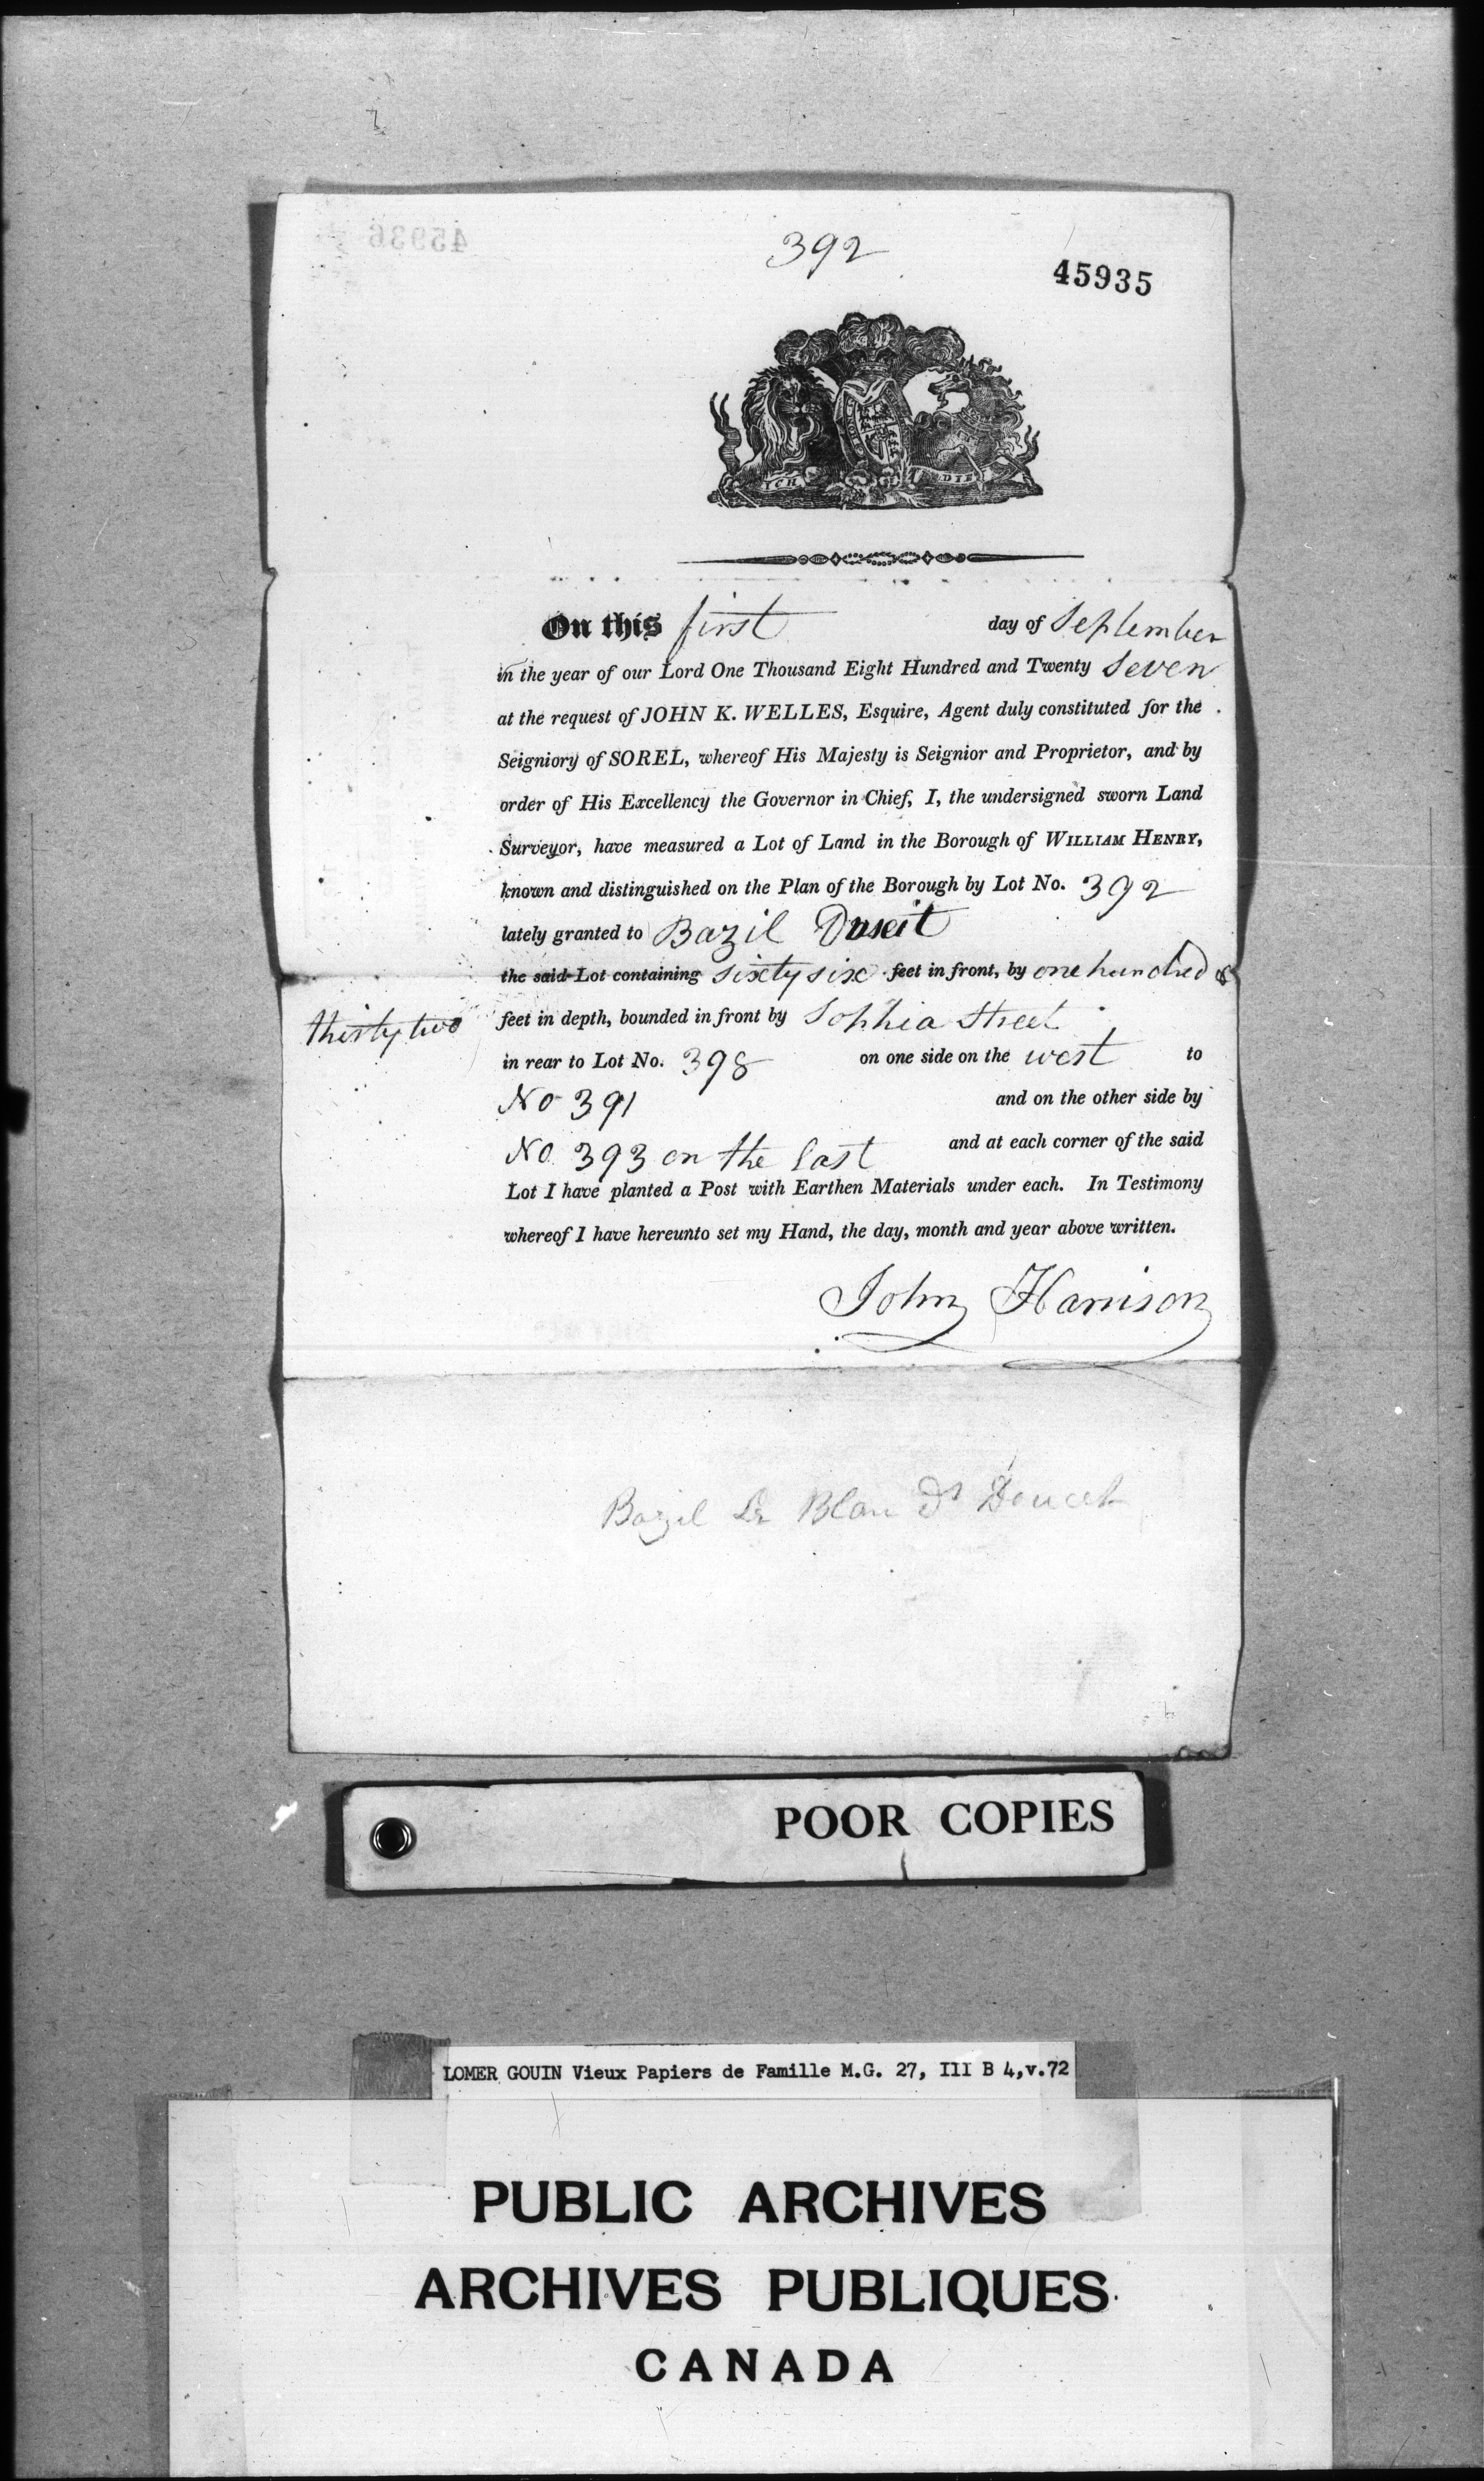 392
45935
45936
ICH DIEN
On this first day of September
in the year of our Lord One Thousand Eight Hundred and Twenty Seven
at the request of JOHN K. WELLES, Esquire, Agent duly constituted for the
Seigniory of SOREL, whereof His Majesty is Seignior and Proprietor, and by
order of His Excellency the Governor in Chief, I, the undersigned sworn Land
Surveyor, have measured a Lot of Land in the Borough of WILLIAM HENRY,
known and distinguished on the Plan of the Borough by Lot No. 392
lately granted to Bazil
the said Lot containing sixty six feet in front, by one hundred &
thirty two feet in depth, bounded in front by Sophia Street
in rear to Lot No. 398 on one side on the west to
No 391 and on the other side by
No. 393 on the East and at each corner of the said
Lot I have planted a Post with Earthen Materials under each. In Testimony
whereof I have hereunto set my Hand, the day, month and year above written.
John Harrison
Bazil Le Blanc Dt Doucet
POOR COPIES
LOMER GOUIN Vieux Papiers de Famille M.G. 27, III B 4,v.72
PUBLIC ARCHIVES
ARCHIVES PUBLIQUES
CANADA